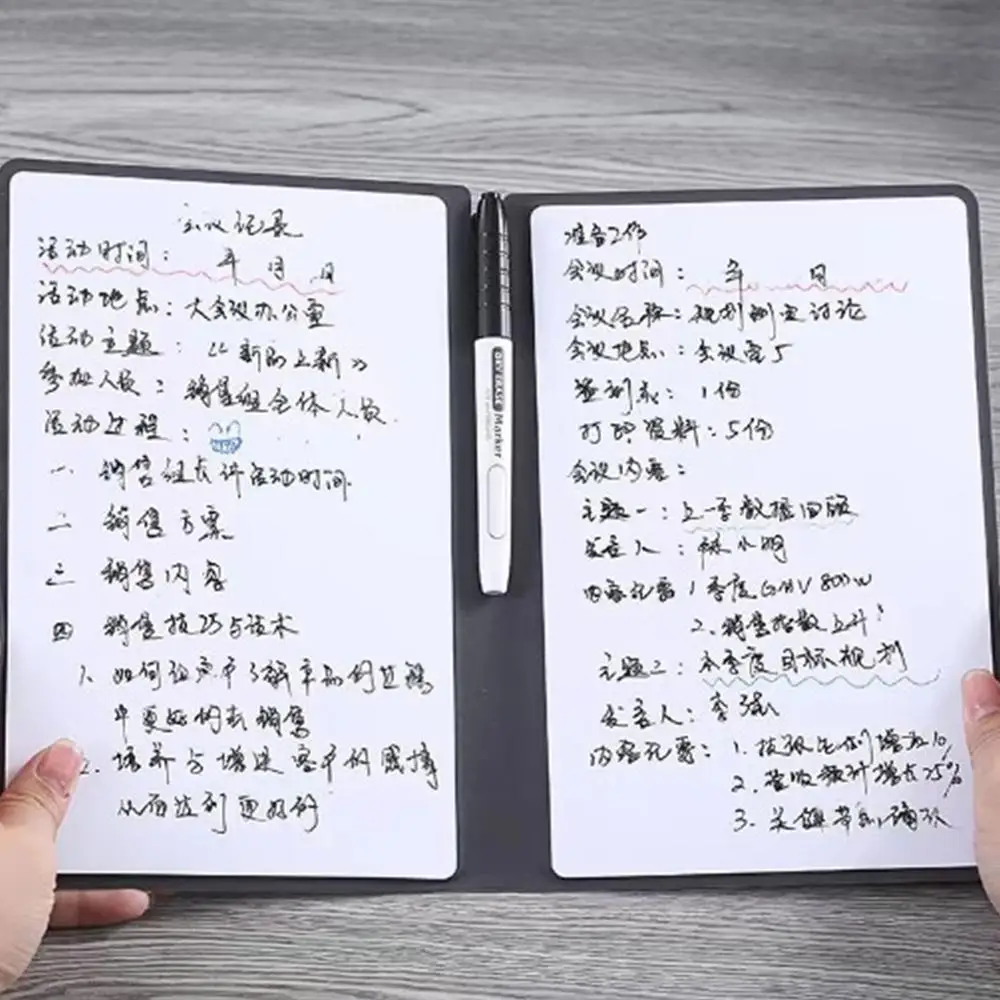 会议记录
活动时间： 年 月 日
活动地点：大会议办公室
活动主题：《新品上新》
参加人员：销售组全体人员.
活动过程：
一 销售组长讲活动时间.
二 销售方案
三 销售内容
四 销售技巧与话术
1. 如何让客户了解产品的过程
中更好的去销售
2. 培养与增进客户的感情
从而达到更好的
DIVERSE Marker
准备工作
会议时间： 年 日
会议名称：规划制定讨论
会议地点：会议室5
签到表：1份
打印资料：5份
会议内容：
主题一：上一季数据回顾
发言人：林小明
内容记要 1 季度GMV 800w
2. 销售指数上升!
主题二：本季度目标规划
发言人：李强
内容记要：1. 投放比例增加1%
2. 营收额计增长25%
3. 关键节点确认